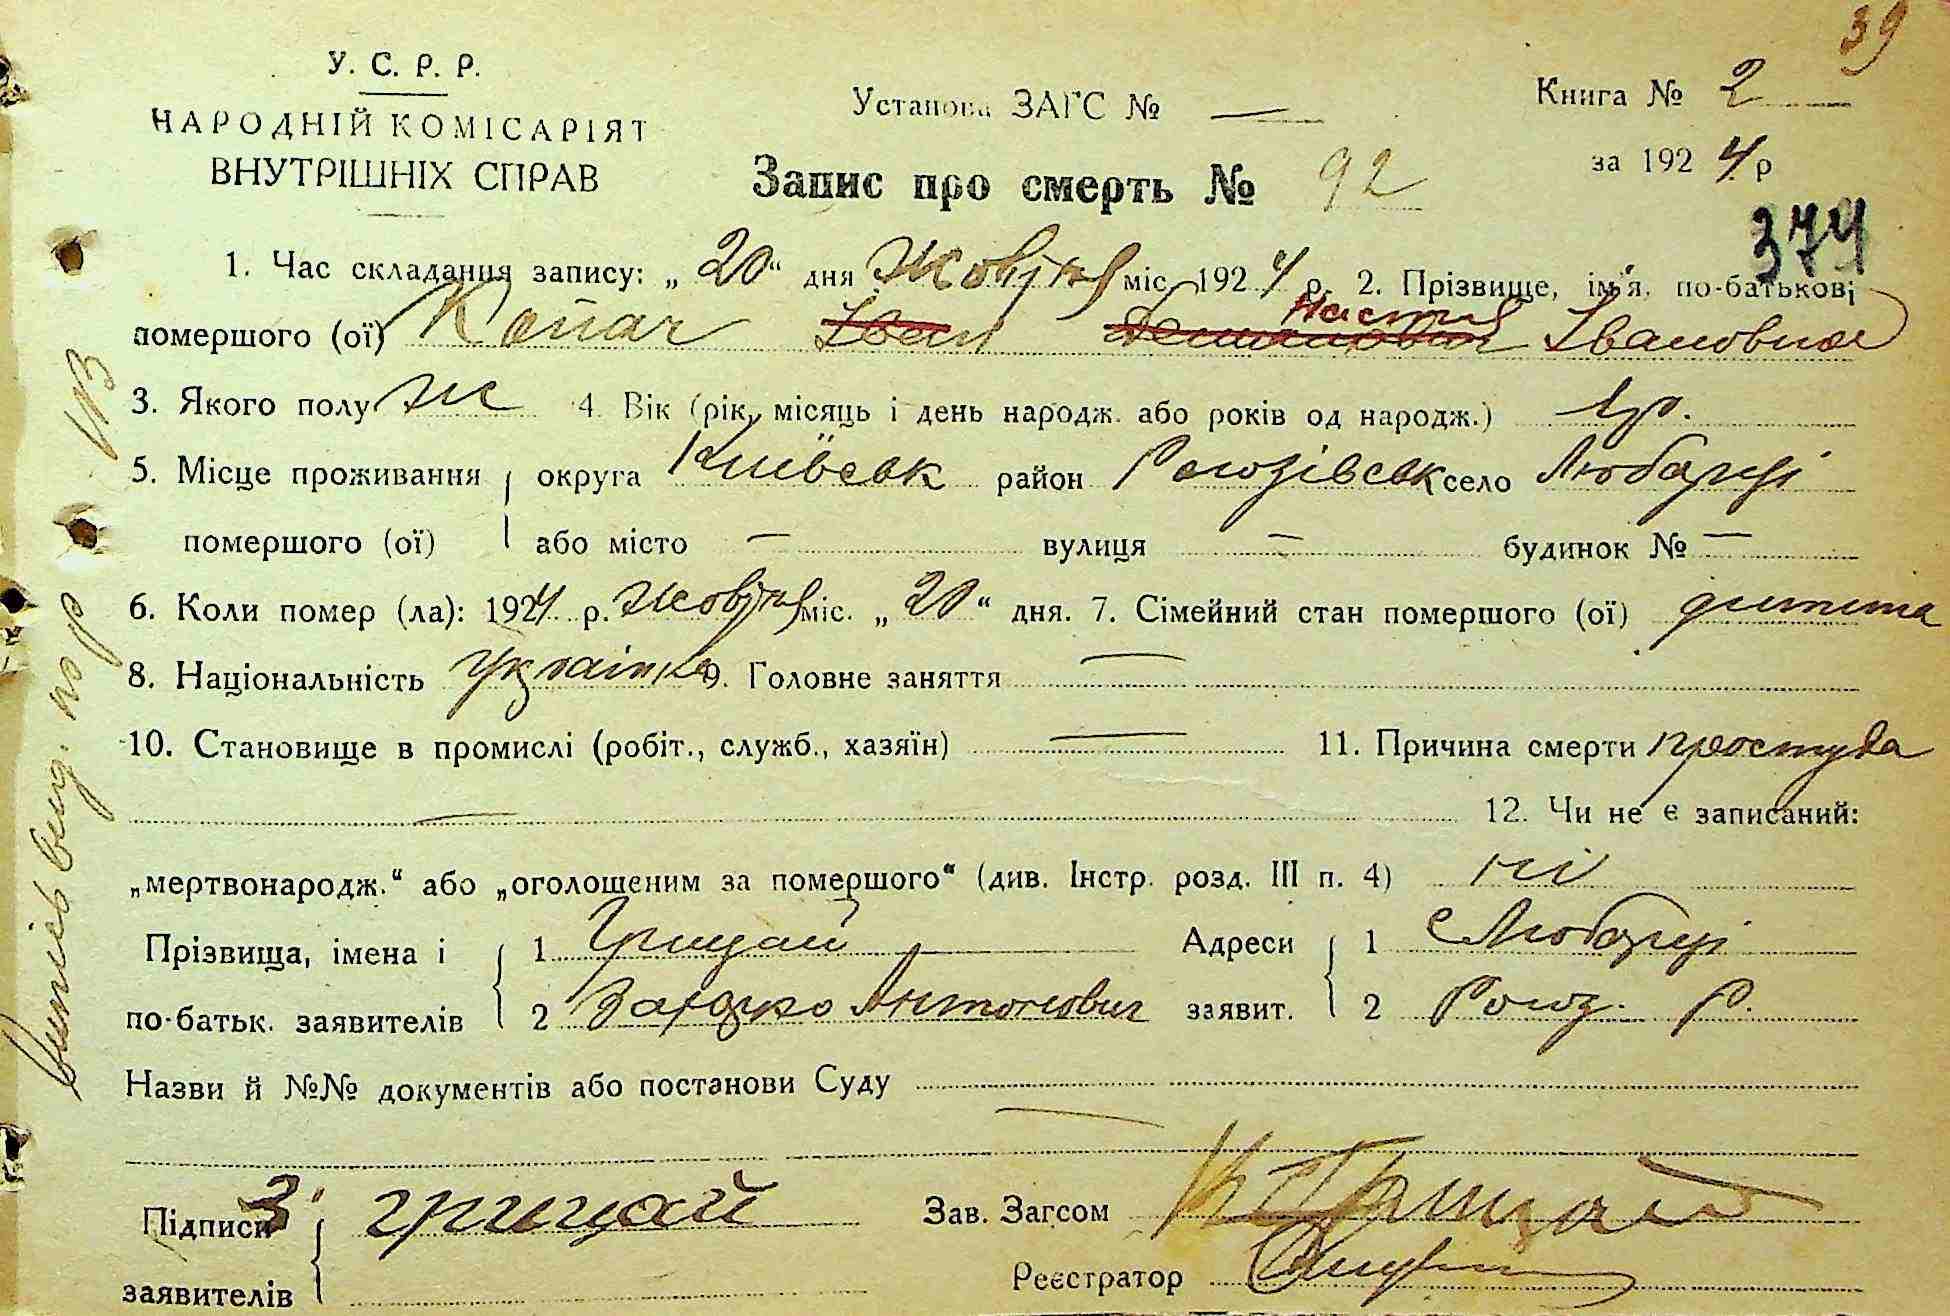 39
У. С. Р. Р.
НАРОДНІЙ КОМІСАРІЯТ
ВНУТРІШНІХ СПРАВ
Установа ЗАГС № —
Книга № 2
за 1924 р
Запис про смерть № 92
374
1. Час складання запису: „20“ дня Жовтня міс. 1924 р. 2. Прізвище, ім'я, по-батькові
Настя
помершого (ої) Копач Іван Демянович Івановна
3. Якого полу ж 4. Вік (рік, місяць і день народж. або років од народж.) 1 р.
5. Місце проживання округа Київськ район Рогозівськ село Любарці
помершого (ої) або місто — вулиця — будинок № —
6. Коли помер (ла): 1924 р. Жовтня міс. „20“ дня. 7. Сімейний стан помершого (ої) дитина
8. Національність Українка 9. Головне заняття —
10. Становище в промислі (робіт., служб., хазяїн) — 11. Причина смерти простуда
— 12. Чи не є записаний:
„мертвонародж.“ або „оголошеним за помершого“ (див. Інстр. розд. III п. 4) ні
Прізвища, імена і 1 Грицай — Адреси 1 с Любарці
по-батьк. заявителів 2 Антонович заявит. 2 Рогоз. Р.
Назви й №№ документів або постанови Суду
—
Підписи З. Грицай Зав. Загсом Грицай
заявителів Реєстратор